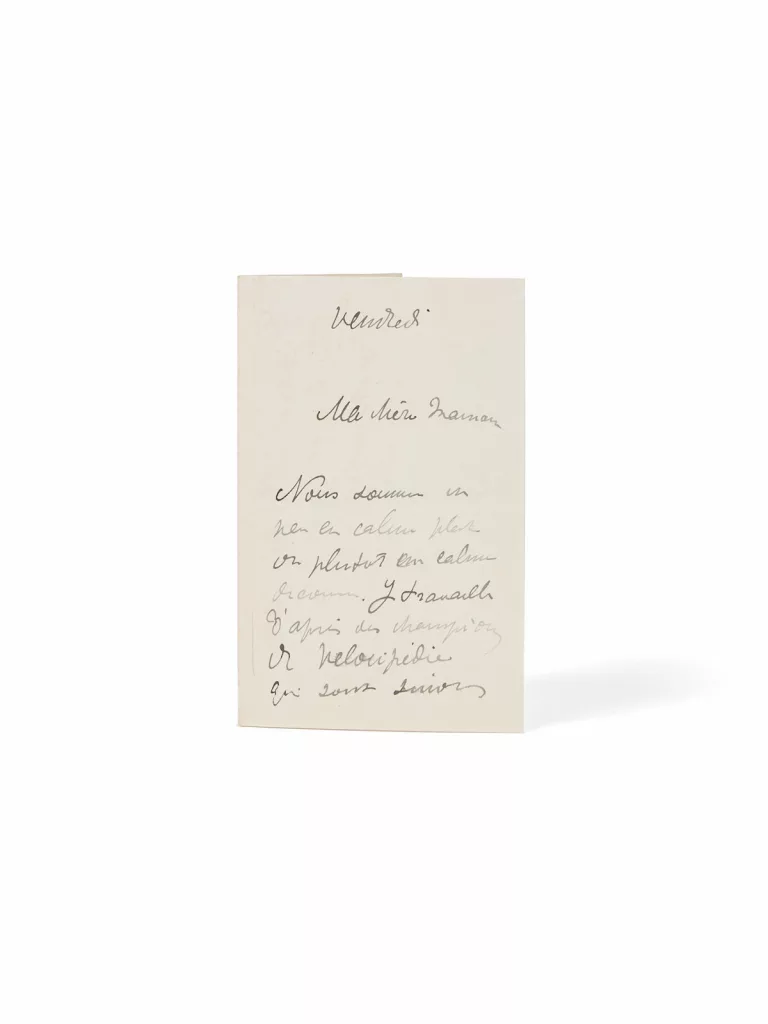 Vendredi
Ma chère Maman
Nous sommes un
peu en calme plat
ou plutôt en calme
J travaille
d'après des champions
de Vélocipédie
qui sont sinon